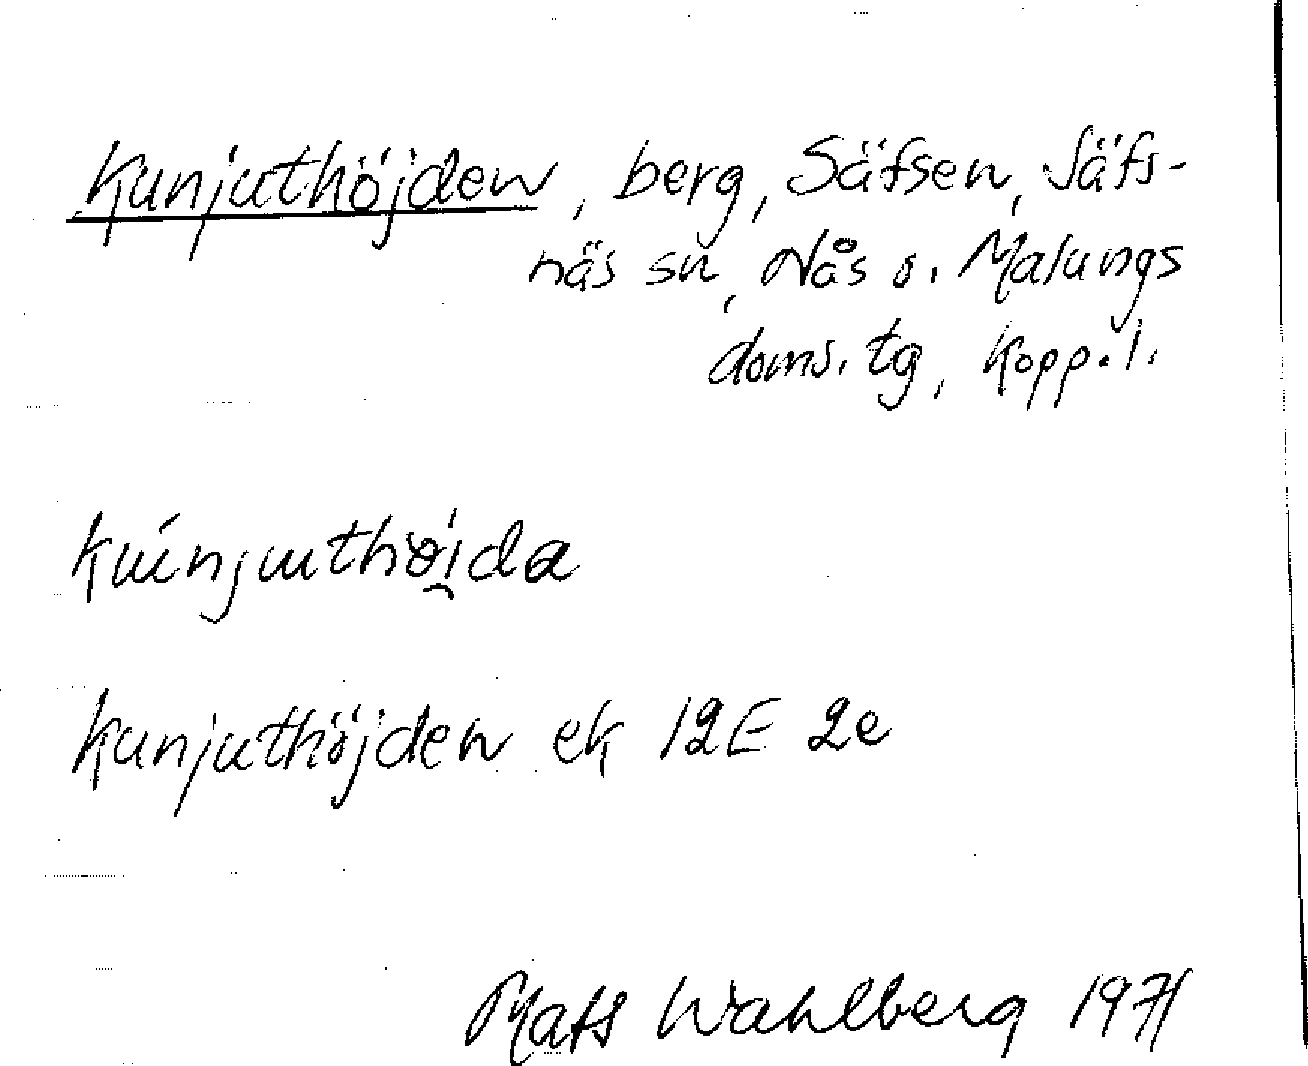 Kunjuthöjden, berg, Säfsen, Säfs-
näs sn, Nås o. Malungs
doms. tg, Kopp. l.
kɯ́njɯthöi̯da
Kunjuthöjden ek 12E 2e
Mats Wahlberg 1971